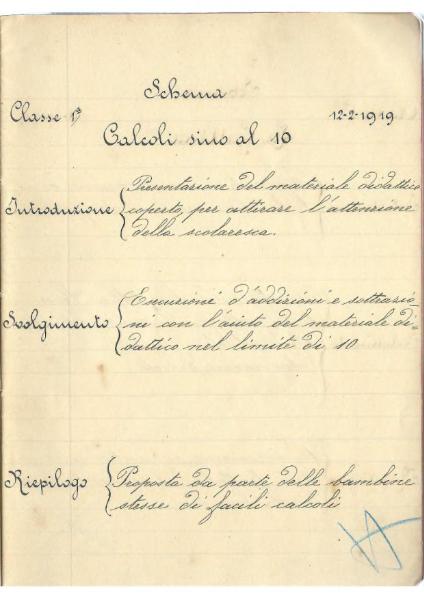 Schema
Classe 1ª 12-2-1919
Calcoli sino al 10
Introduzione
Presentazione del materiale didattico
coperto, per attirare l'attenzione
della scolaresca.
Svolgimento
d'addizioni e sottrazio-
ni con l'aiuto del materiale di-
dattico nel limite di 10
Riepilogo
Proposta da parte delle bambine
stesse di facili calcoli